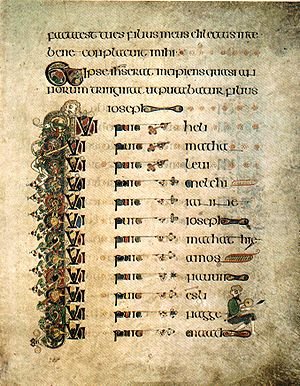 facta est tu es filius meus dilectus in te
bene conplacuit mihi
Et ipse ihs erat incipiens quasi an
norum triginta ut putabatur filius
ioseph
QUI fuit heli
QUI fuit matha
QUI fuit leui
QUI fuit melchi
QUI fuit
QUI fuit ioseph
QUI fuit mathat hie
QUI fuit amos
QUI fuit nauum
QUI fuit esli
QUI fuit nagge
QUI fuit maath